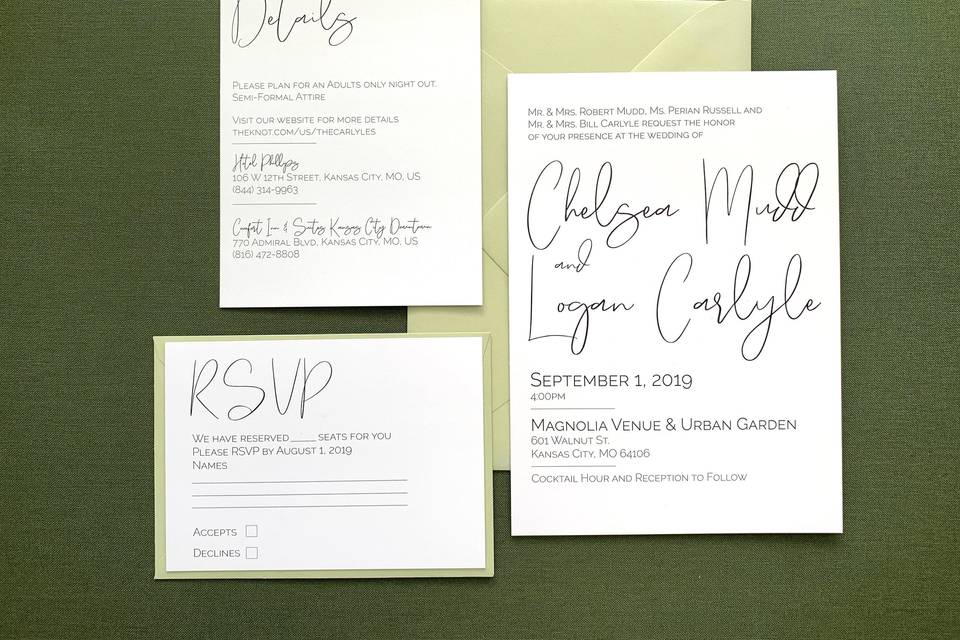 Details
Please plan for an Adults only night out.
Semi-Formal Attire
Visit our website for more details
theknot.com/us/thecarlyles
Hotel Phillips
106 W 12th Street, Kansas City, MO, US
(844) 314-9963
Comfort Inn & Suites Kansas City Downtown
770 Admiral Blvd, Kansas City, MO, US
(816) 472-8808
RSVP
We have reserved____ seats for you
Please RSVP by August 1, 2019
Names
Accepts
Declines
Mr. & Mrs. Robert Mudd, Ms. Perian Russell and
Mr. & Mrs. Bill Carlyle request the honor
of your presence at the wedding of
Chelsea Mudd
and
Logan Carlyle
September 1, 2019
4:00pm
Magnolia Venue & Urban Garden
601 Walnut St.
Kansas City, MO 64106
Cocktail Hour and Reception to Follow